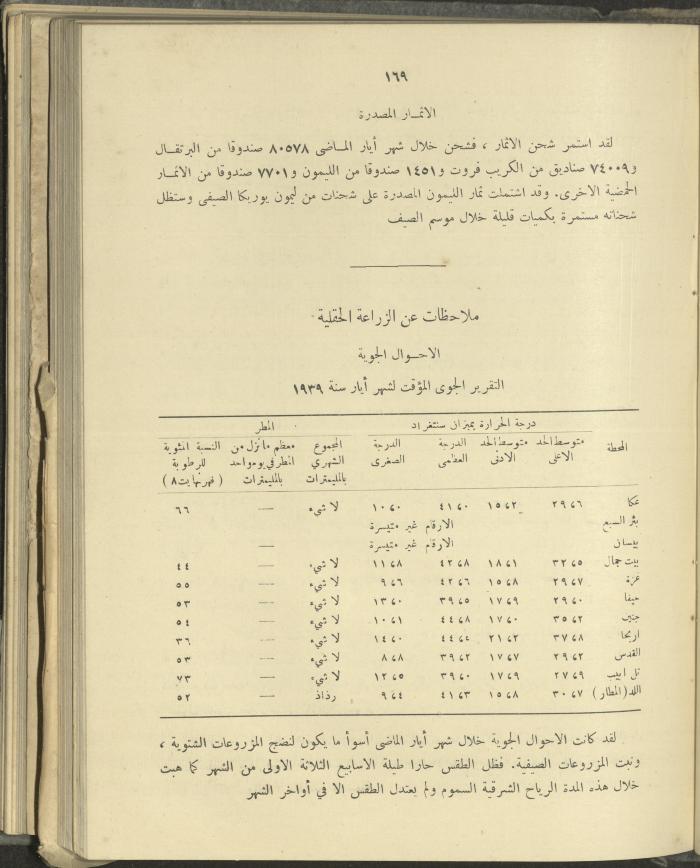 ١٦٩
الاثمـار المصدرة
لقد استمر شحن الاثمار ، فشحن خلال شهر أيار المـاضى ٨٠٥٧٨ صندوقا من البرتقـال
و٧٤٠٠٩ صناديق من الكريب فروت و١٤٥١ صندوقا من الليمون و٧٧٠١ صندوقا من الاثمـار
الحمضية الاخرى. وقد اشتملت ثمار الليمون المصدرة على شحنات من ليمون يوريكا الصيفى وستظل
شحناته مستمرة بكميات قليلة خلال موسم الصيف
ملاحظات عن الزراعة الحقلية
الاحـوال الجوية
التقرير الجوى المؤقت لشهر أيار سنة ١٩٣٩
درجة الحرارة بميزان سنتغراد المطر
المحطة متوسط الحد الاعلى متوسط الحد الادنى الدرجة العظمى الدرجة الصغرى المجموع الشهري بالمليمترات معظم ما نزل من المطر في يوم واحد بالمليمترات النسبة المئوية للرطوبة ( فهرنهايت ٨ )
عكا ٢٩،٦ ١٥،٢ ٤١،٠ ١٠،٠ لا شيء — ٦٦
بئر السبع الارقام غير متيسرة
بيسان الارقام غير متيسرة —
بيت جمال ٣٢،٥ ١٨،١ ٤٢،٨ ١١،٨ لا شيء — ٤٤
غزة ٢٩،٧ ١٥،٨ ٤٢،٦ ٩،٦ لا شيء — ٥٥
حيفا ٢٩،٠ ١٧،٩ ٣٩،٥ ١٣،٠ لا شيء — ٥٣
جنين ٣٥،٢ ١٧،٠ ٤٤،٨ ١٠،١ لا شيء — ٥٤
اريحا ٣٧،٨ ٢١،٢ ١٤،٠ لا شيء — ٣٦
القدس ٢٩،٢ ١٧،٧ ٣٩،٢ ٨،٨ لا شيء — ٥٣
تل ابيب ٢٧،٩ ١٧،٩ ٣٩،٠ ١٢،٥ لا شيء — ٧٣
اللد (المطار) ٣٠،٧ ١٥،٨ ٤١،٣ ٩،٤ رذاذ — ٥٢
لقد كانت الاحوال الجوية خلال شهر أيار الماضى أسوأ ما يكون لنضج المزروعات الشتوية ،
ونبت المزروعات الصيفية. فظل الطقس حارا طيلة الاسابيع الثلاثة الاولى من الشهر كما هبت
خلال هذه المدة الرياح الشرقية السموم ولم يعتدل الطقس الا في أواخر الشهر